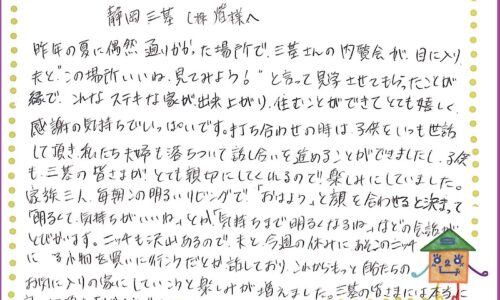 静岡 三基 (株) 皆様へ
昨年の夏に偶然 通りかかった場所で、三基さんの内覧会が、目に入り、
夫と“この場所いいね、見てみよう!”と言って見学させてもらったことが
縁で、こんなステキな家が出来上がり、住むことができてとても嬉しく、
感謝の気持ちでいっぱいです。打ち合わせの時は、子供をいつも世話
して頂き、私たち夫婦も落ちついて話し合いを進めることができましたし、子供
も、三基の皆さまが、とても親切にしてくれるので、楽しみにしていました。
家族三人、毎朝この明るいリビングで、「おはよう」と顔を合わせると決まって
「明るくて、気持ちがいいね」とか「気持ちまで明るくなるね」などの会話が
とびかいます。ニッチも沢山あるので、夫と、今週の休みに あそこのニッチ
に る小物を買いに行こうだとか話しており、これからもっと自分たちの
お気に入りの家にしていこうと楽しみが増えました。三基の皆さまには本当に